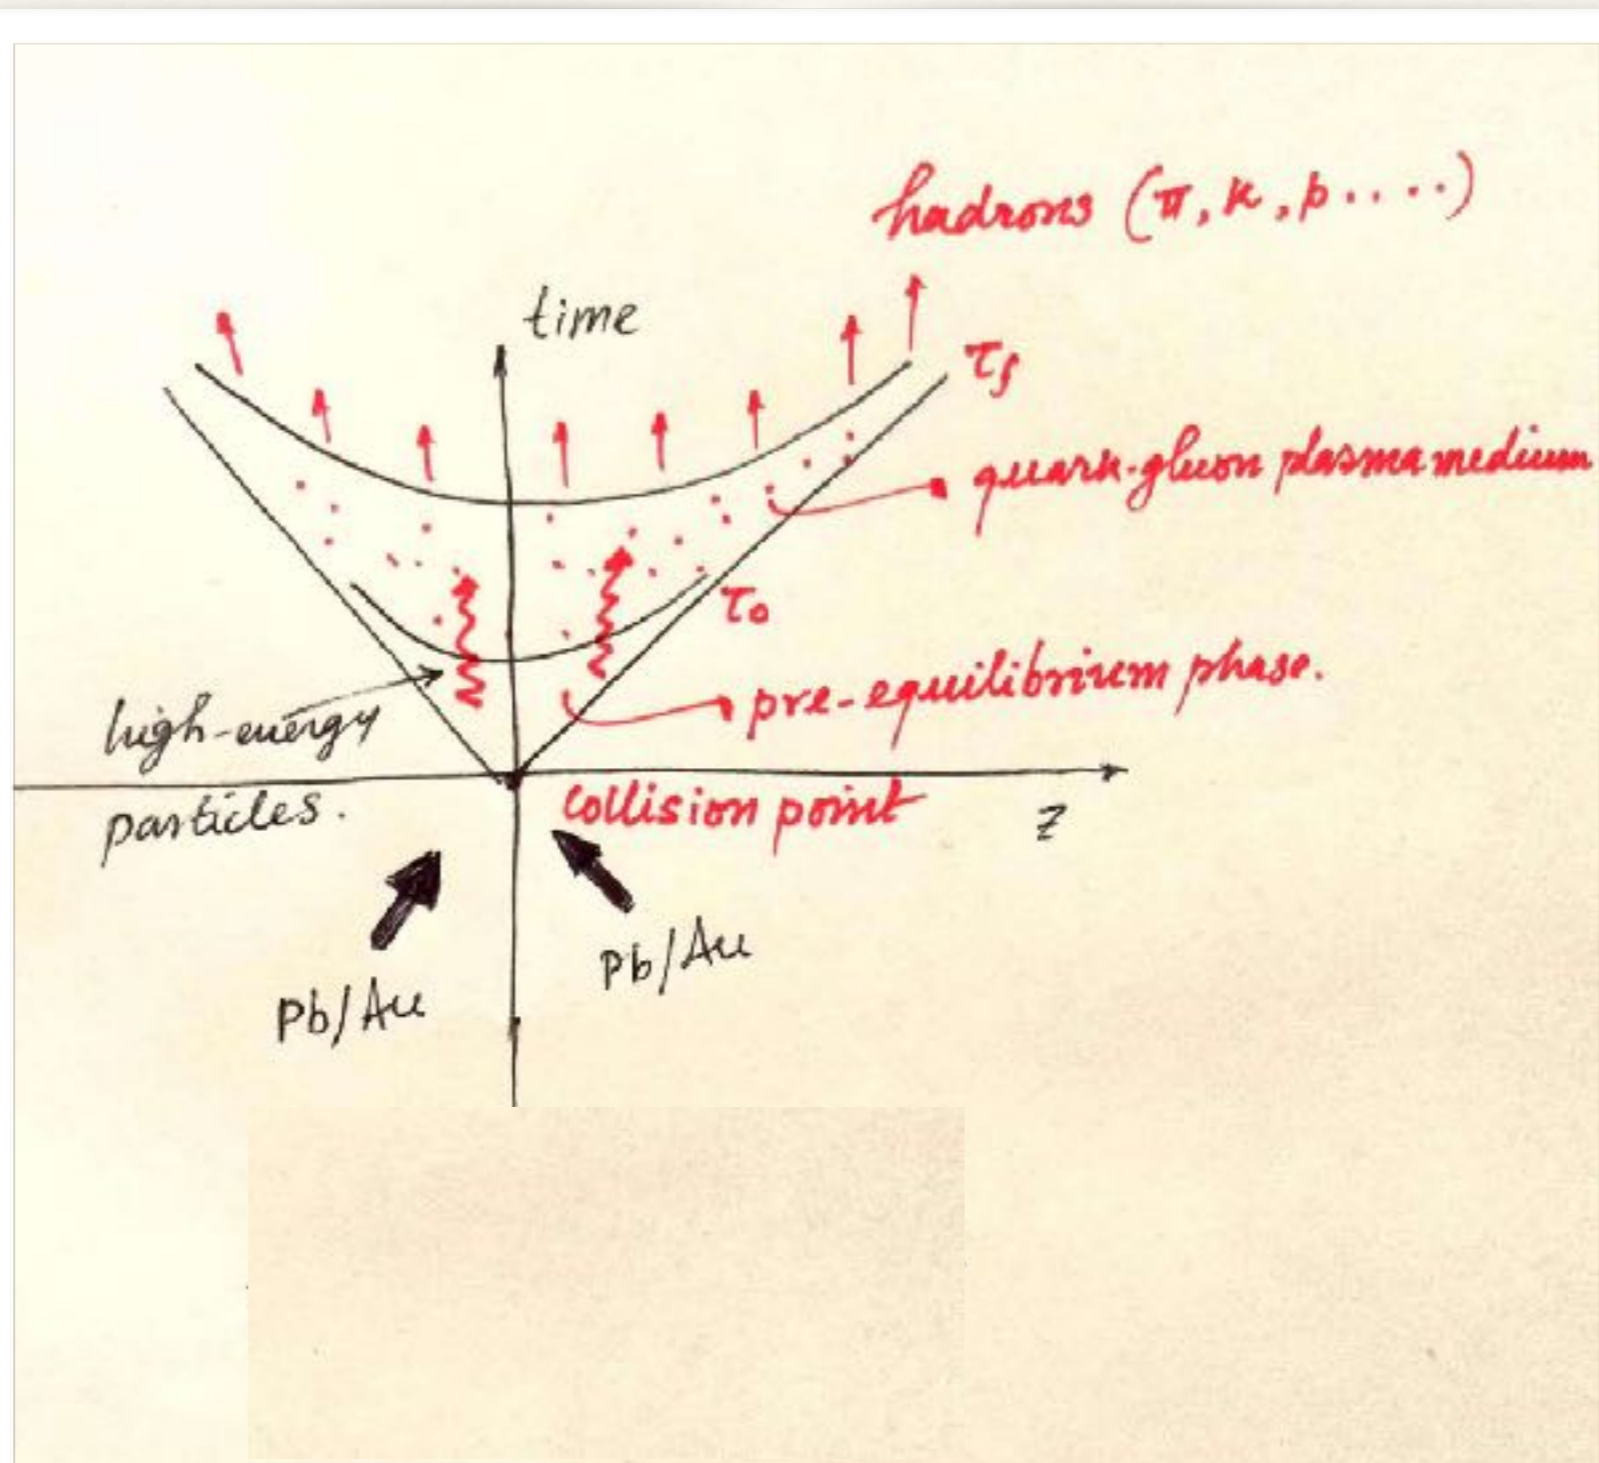 hadrons (π, K, p.....)
time
τf
quark-gluon plasma medium
τ0
pre-equilibrium phase.
high-energy
particles.
Collision point
z
Pb/Au
Pb/Au